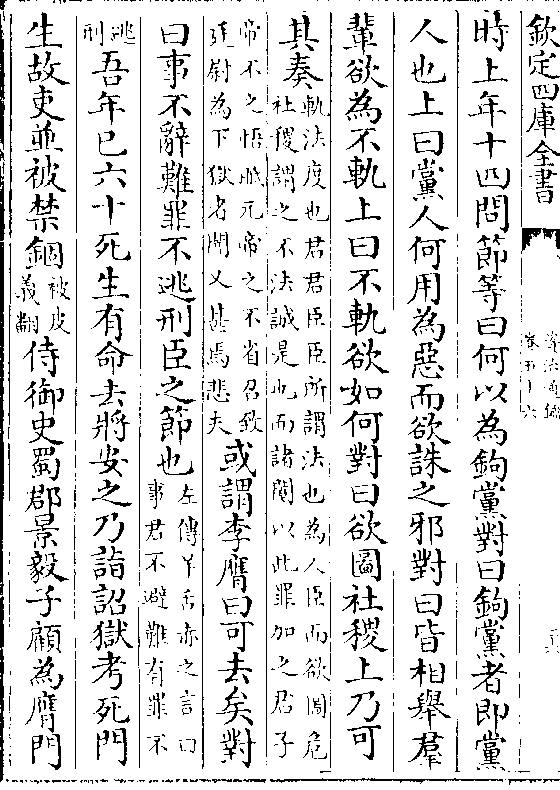 欽定四庫全書
時上年十四問節等曰何以為鉤黨對曰鉤黨者即黨
人也上曰黨人何用為惡而欲誅之邪對曰皆相舉羣
輩欲為不軌上曰不軌欲如何對曰欲圖社稷上乃可
其奏軌法度也君君臣臣所謂法也為人臣而欲圖危
社稷謂之不法誠是也而諸閹以此罪加之君子
帝不之悟視元帝之不省召致
廷尉為下獄者闇又甚焉悲夫或謂李膺曰可去矣對
曰事不辭難罪不逃刑臣之節也左傳羊舌赤之言曰
事君不避難有罪不
逃
刑吾年已六十死生有命去將安之乃詣詔獄考死門
生故吏並被禁錮被皮
義翻侍御史蜀郡景毅子顧為膺門